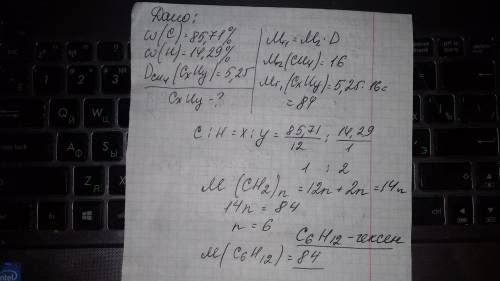 Дано:
ω(C)=85,71%
ω(H)=14,29%
DCH4(CxHy)=5,25
CxHy=?
M1=M2·D
M2(CH4)=16
Mr1(CxHy)=5,25·16=
=84
C:H=x:y=85,71/12:14,29/1
1:2
M(CH2)n=12n+2n=14n
14n=84
n=6
C6H12-гексен
M(C6H12)=84